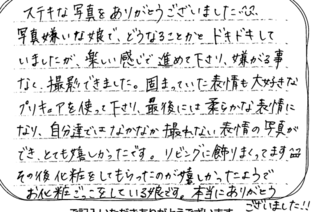 ステキな写真をありがとうございました
写真嫌いな娘で、どうなることかと ドキドキして
いましたが、楽しい感じで進めて下さり、嫌がる事
なく、撮影できました。固まっていた表情も大好きな
プリキュアを使って下さり、最後には柔らかな表情に
なり、自分達ではなかなか撮れない表情の写真が
でき、とても嬉しかったです。リビングに飾りまくってます
その後化粧をしてもらったのが嬉しかったようで
お化粧ごっこをしている娘です。本当にありがとう
ございました!!